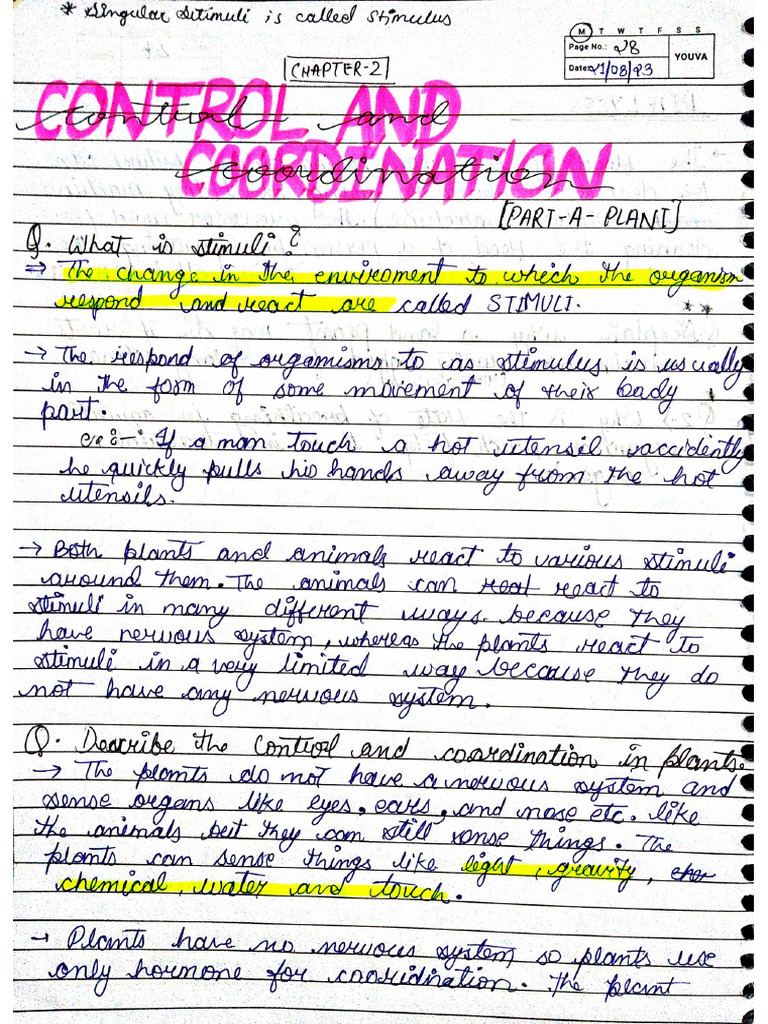 * Singular stimuli is called stimulus
M T W T F S S
Page No.: 28
YOUVA
Date: 21/08/23
[CHAPTER-2]
CONTROL AND
Control and
COORDINATION
Coordination
[PART-A- PLANT]
Q. What is stimuli?
⇒ The change in the enviroment to which the organism
respond and react are called STIMULI.
**
→ The respond of organisms to as stimulus is usually
in the form of some movement of their body
part.
ex:- If a man touch a hot utensil accidently
he quickly pulls his hands away from the hot
utensils.
→ Both plants and animals react to various stimuli
around them. The animals can reat react to
stimuli in many different ways. because they
have nervous system, whereas the plants react to
stimuli in a very limited way because they do
not have any nervous system.
Q. Describe the control and coordination in plants.
→ The plants do not have a nervous system and
sense organs like eyes, ears, and nose etc. like
the animals but they can still sense things. The
plants can sense things like light, gravity,
chemical, water and touch.
→ Plants have no nervous system so plants use
only hormone for cooridination. The plant